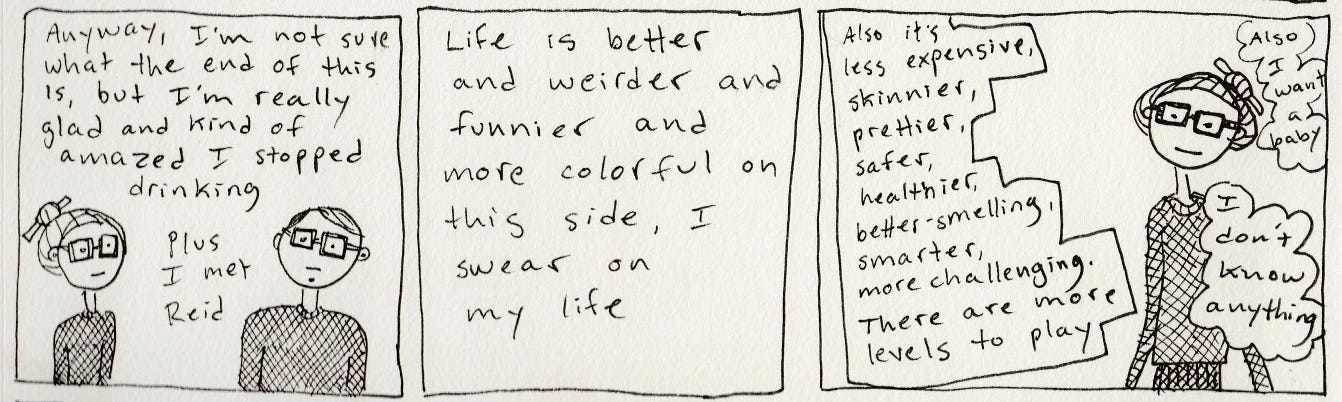 Anyway, I'm not sure
what the end of this
is, but I'm really
glad and kind of
amazed I stopped
drinking
Plus
I met
Reid
Life is better
and weirder and
funnier and
more colorful on
this side, I
swear on
my life
Also it's
less expensive,
skinnier,
prettier,
safer,
healthier,
better-smelling,
smarter,
more challenging.
There are more
levels to play
Also
I
want
a
baby
I
don't
know
anything